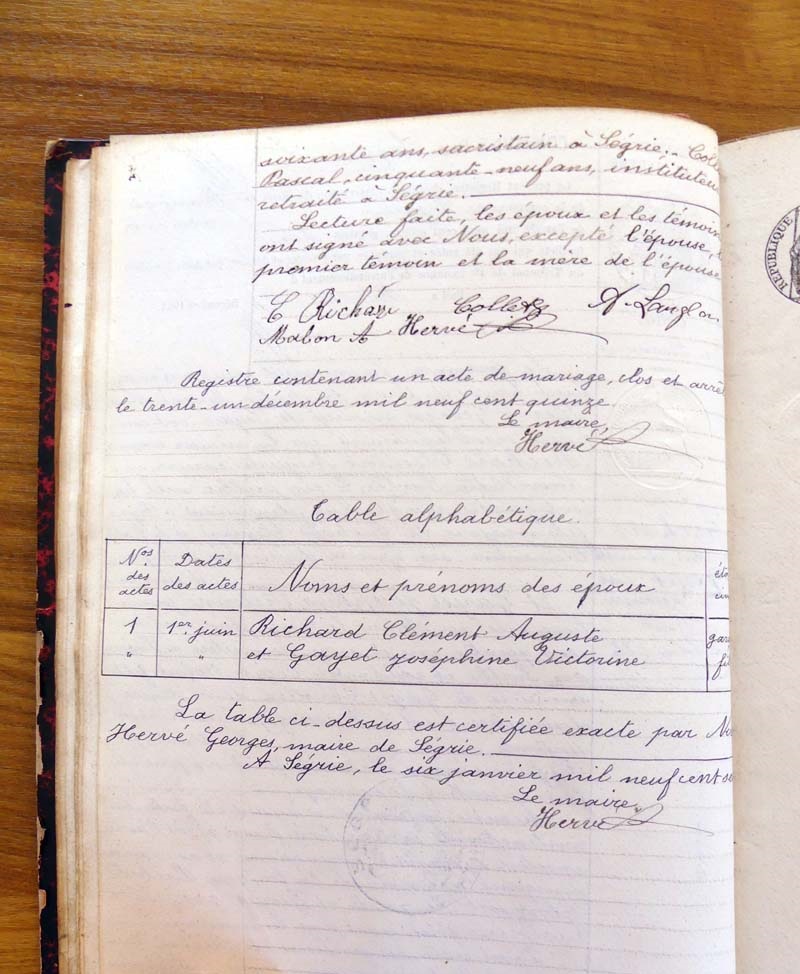 soixante ans, sacristain à Ségrie. - Coll
Pascal, cinquante-neuf ans, instituteu
retraité à Ségrie.
Lecture faite, les époux et les témoin
ont signé avec Nous, excepté l'épouse,
premier témoin et la mère de l'épouse
C Richard Collet A. Langlo
Mabon A Hervé
Registre contenant un acte de mariage, clos et arrêt
le trente-un décembre mil neuf cent quinze
Le maire,
Hervé
Table alphabétique.
Nos des actes Dates des actes Noms et prénoms des époux
1 1er juin Richard Clément Auguste gar
" " et Gayet Joséphine Victorine fil
La table ci-dessus est certifiée exacte par No
Hervé Georges, maire de Ségrie.
A Ségrie, le six janvier mil neuf cent se
Le maire,
Hervé
RÉPUBLIQUE